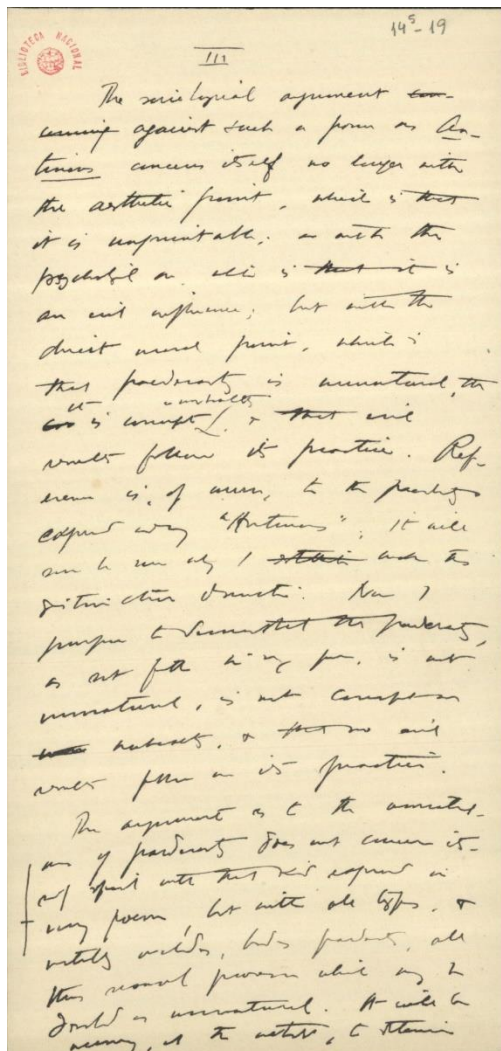 BIBLIOTECA NACIONAL
14⁵-19
III
The sociological argument con-
cerning against such a poem as An-
tinous concerns itself no longer with
the aesthetic point, which is that
it is unprintable; or with the
psychological one, which is that it is
an evil influence; but with the
direct moral point, which is
that paederasty is unnatural, tht
it is corrupt & unhealthy & that evil
results follow its practice. Ref-
erence is, of course, to the paederasty
expressed in my "Antinous". It will
soon be seen why I make this
distinction. Now I
purpose to demonstrate that the paederasty,
as set forth in my poem, is not
unnatural, is not corrupt or
unhealthy, & that no evil
results follow on its practice.
The argument as to the unnatural-
ness of paederasty does not concern it-
self with that kind expressed in
my poem, but with all types, &
includes, besides paederasty, all
those sexual perversions which may be
described as unnatural. It will be
necessary, at the outset, to